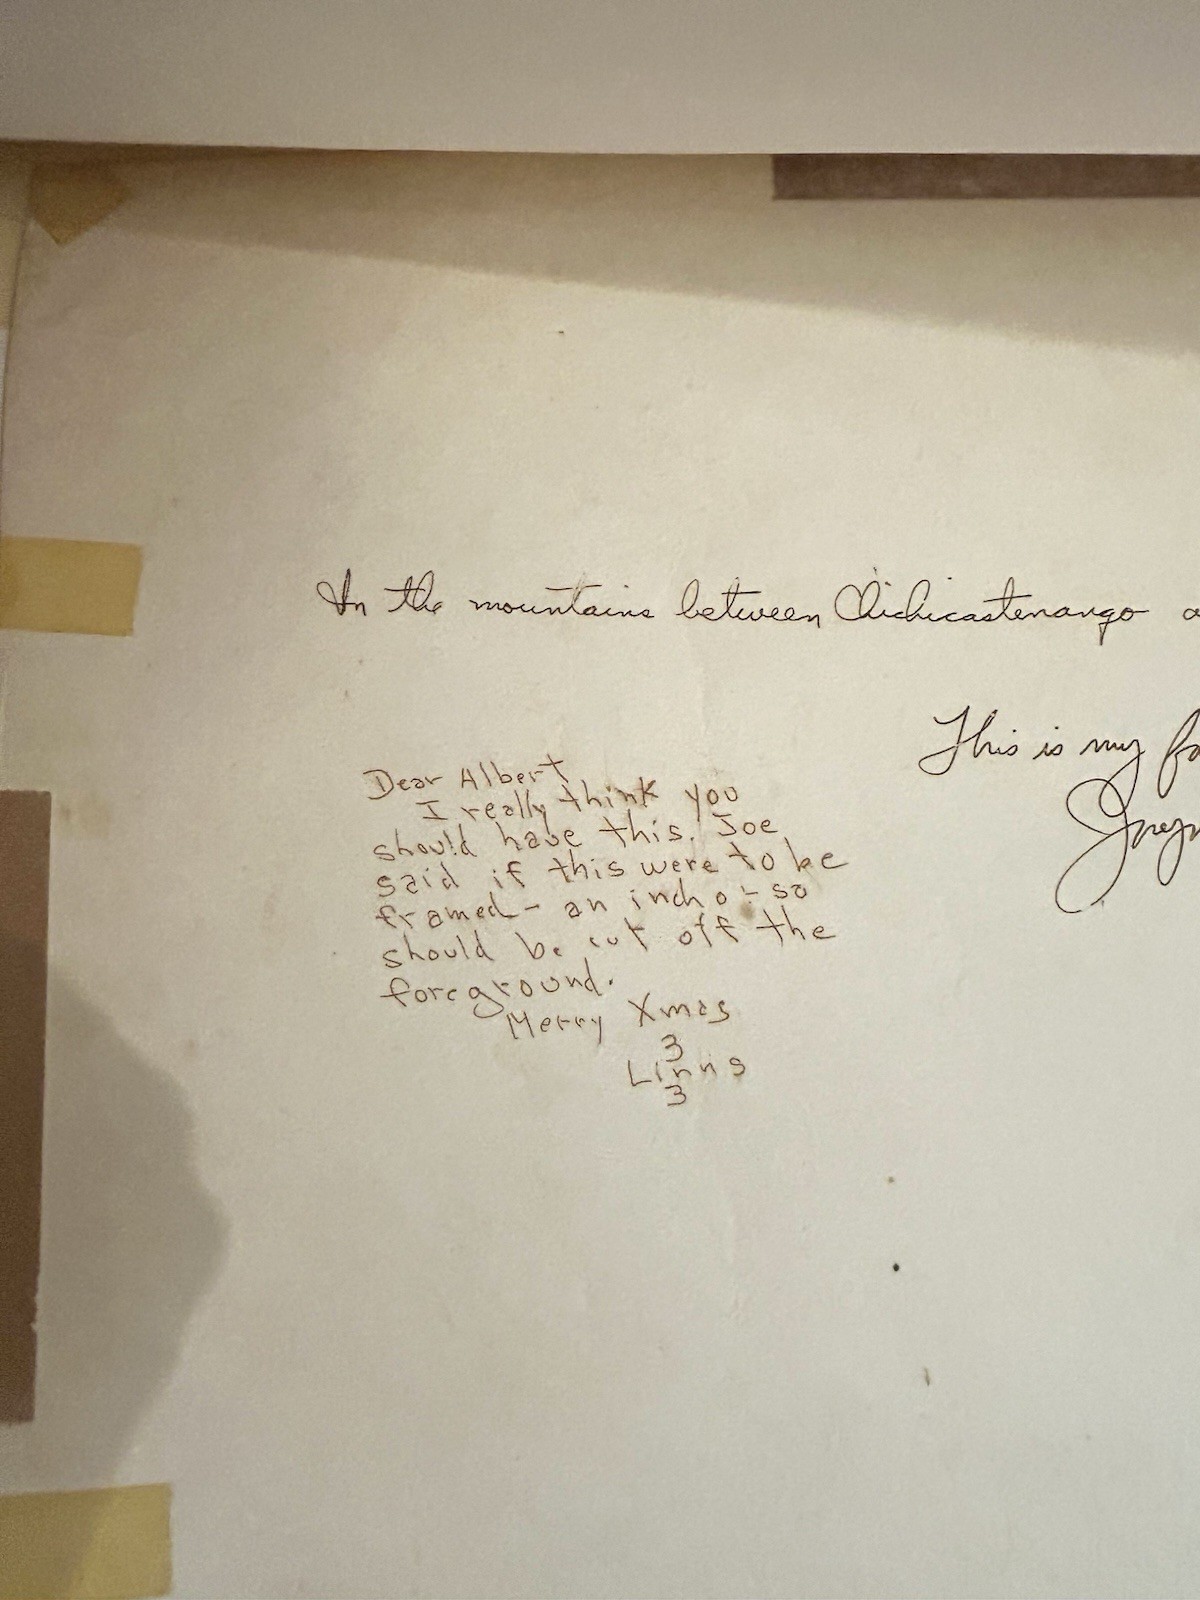 In the mountains between Chichicastenango a
This is my fa
Dear Albert
I really think you
should have this. Joe
said if this were to be
framed - an inch or so
should be cut off the
foreground.
Merry Xmas
3
Linns
3